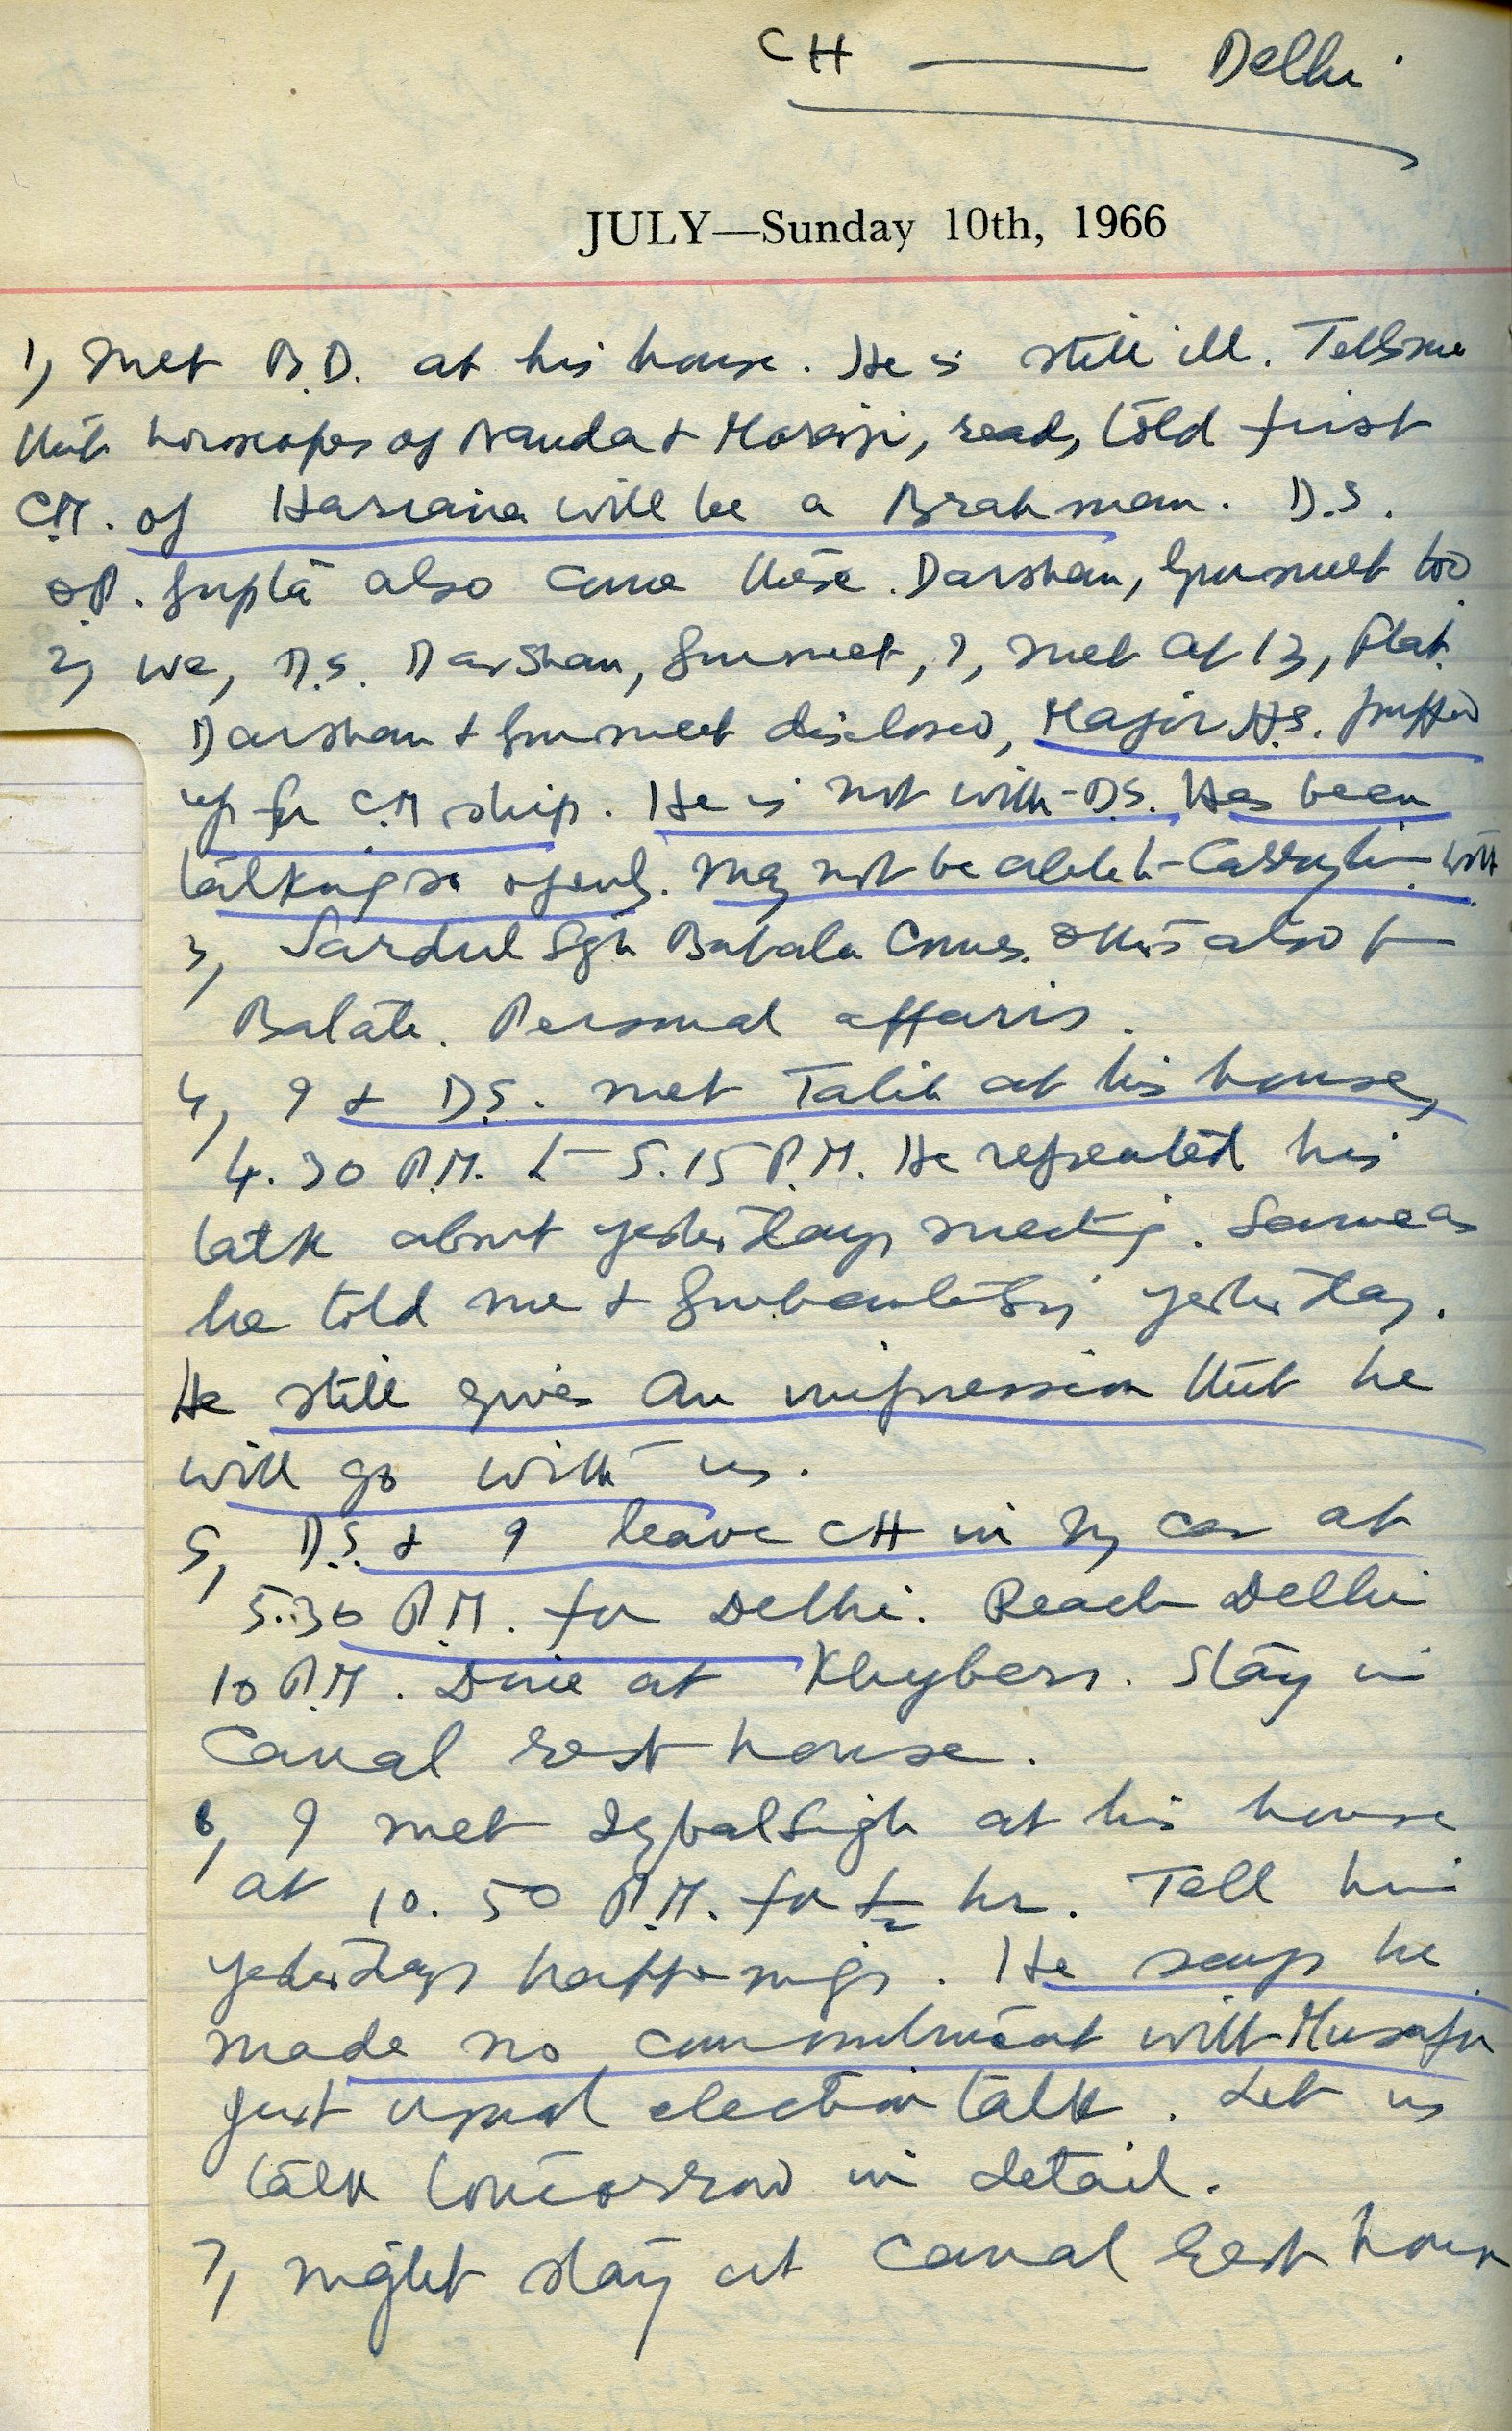 CH — Delhi
JULY—Sunday 10th, 1966
1, Met B.D. at his house. He is still ill. Tells me
that horoscopes of Nanda & Morarji, read, told first
C.M. of Hariana will be a Brahman. D.S.
O.P. Gupta also came there. Darshan, Gurmeet too
2, We, D.S. Darshan, Gurmeet, I, met at 13, Flat.
Darshan & Gurmeet disclosed, Major H.S. puffed
up for C.M ship. He is not with D.S. Has been
talking so openly. May not be able to carry him with
3, Sardul Sgh Batala comes. Others also from
Batala. Personal affairs.
4, I & D.S. met Talib at his house,
4.30 P.M. to 5.15 P.M. He repeated his
talk about yesterdays meeting. Same as
he told me & Gurbantaji yesterday.
He still gives an impression that he
will go with us.
5, D.S. & I leave CH in my car at
5.30 P.M. for Delhi. Reach Delhi
10 P.M. Dine at Khybers. Stay in
Canal rest house.
6, I met Iqbal Singh at his house
at 10.50 P.M. for ½ hr. Tell him
yesterdays happenings. He says he
made no commitment with Musafir
just usual election talk. Let us
talk tomorrow in detail.
7, Night stay at Canal Rest house